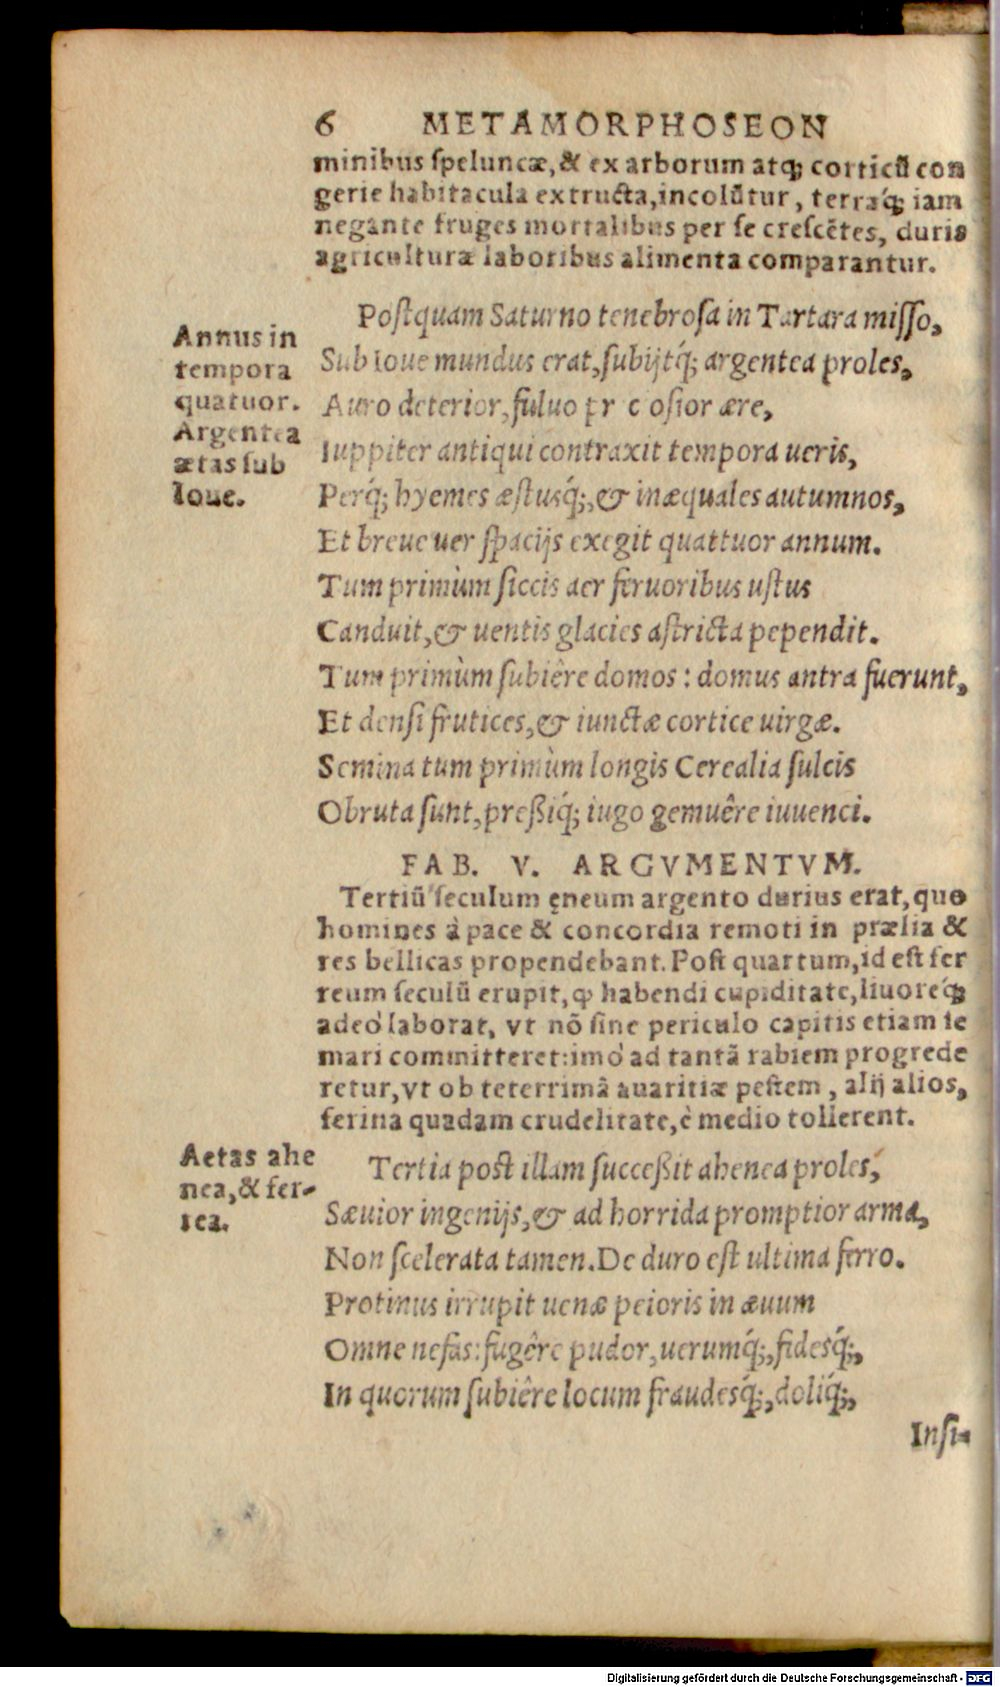 6 METAMORPHOSEON
minibus ſpeluncæ, & ex arborum atq́; corticū con
gerie habitacula extructa, incolūtur, terraq́; iam
negante fruges mortalibus per ſe creſcētes, duris
agriculturæ laboribus alimenta comparantur.
Annus in
tempora
quatuor.
Argentea
ætas ſub
Ioue.
Poſtquam Saturno tenebroſa in Tartara miſſo,
Sub Ioue mundus erat, ſubijtq́; argentea proles,
Auro deterior, fuluo pr c oſior ære,
Iuppiter antiqui contraxit tempora ueris,
Perq́; hyemes æſtusq́;, & inæquales autumnos,
Et breue uer ſpacijs exegit quattuor annum.
Tum primùm ſiccis aer feruoribus uſtus
Canduit, & uentis glacies aſtricta pependit.
Tum primùm ſubiêre domos: domus antra fuerunt,
Et denſi frutices, & iunctæ cortice uirgæ.
Semina tum primùm longis Cerealia ſulcis
Obruta ſunt, preßiq́; iugo gemuêre iuuenci.
FAB. V. ARGVMENTVM.
Tertiū ſeculum ęneum argento durius erat, quo
homines à pace & concordia remoti in prælia &
res bellicas propendebant. Poſt quartum, id eſt fer
reum ſeculū erupit, ꝙ habendi cupiditate, liuoreq́;
adeò laborat, vt nō ſine periculo capitis etiam ſe
mari committeret: imò ad tantā rabiem progrede
retur, vt ob teterrimā auaritiæ peſtem, alij alios,
ferina quadam crudelitate, è medio tollerent.
Aetas ahe
nea, & fer-
rea.
Tertia poſt illam ſucceßit ahenea proles,
Sæuior ingenijs, & ad horrida promptior arma,
Non ſcelerata tamen. De duro eſt ultima ferro.
Protinus irrupit uenæ peioris in æuum
Omne nefas: fugêre pudor, uerumq́;, fidesq́;,
In quorum ſubiêre locum fraudesq́;, doliq́;,
Inſi-
Digitalisierung gefördert durch die Deutsche Forschungsgemeinschaft - DFG